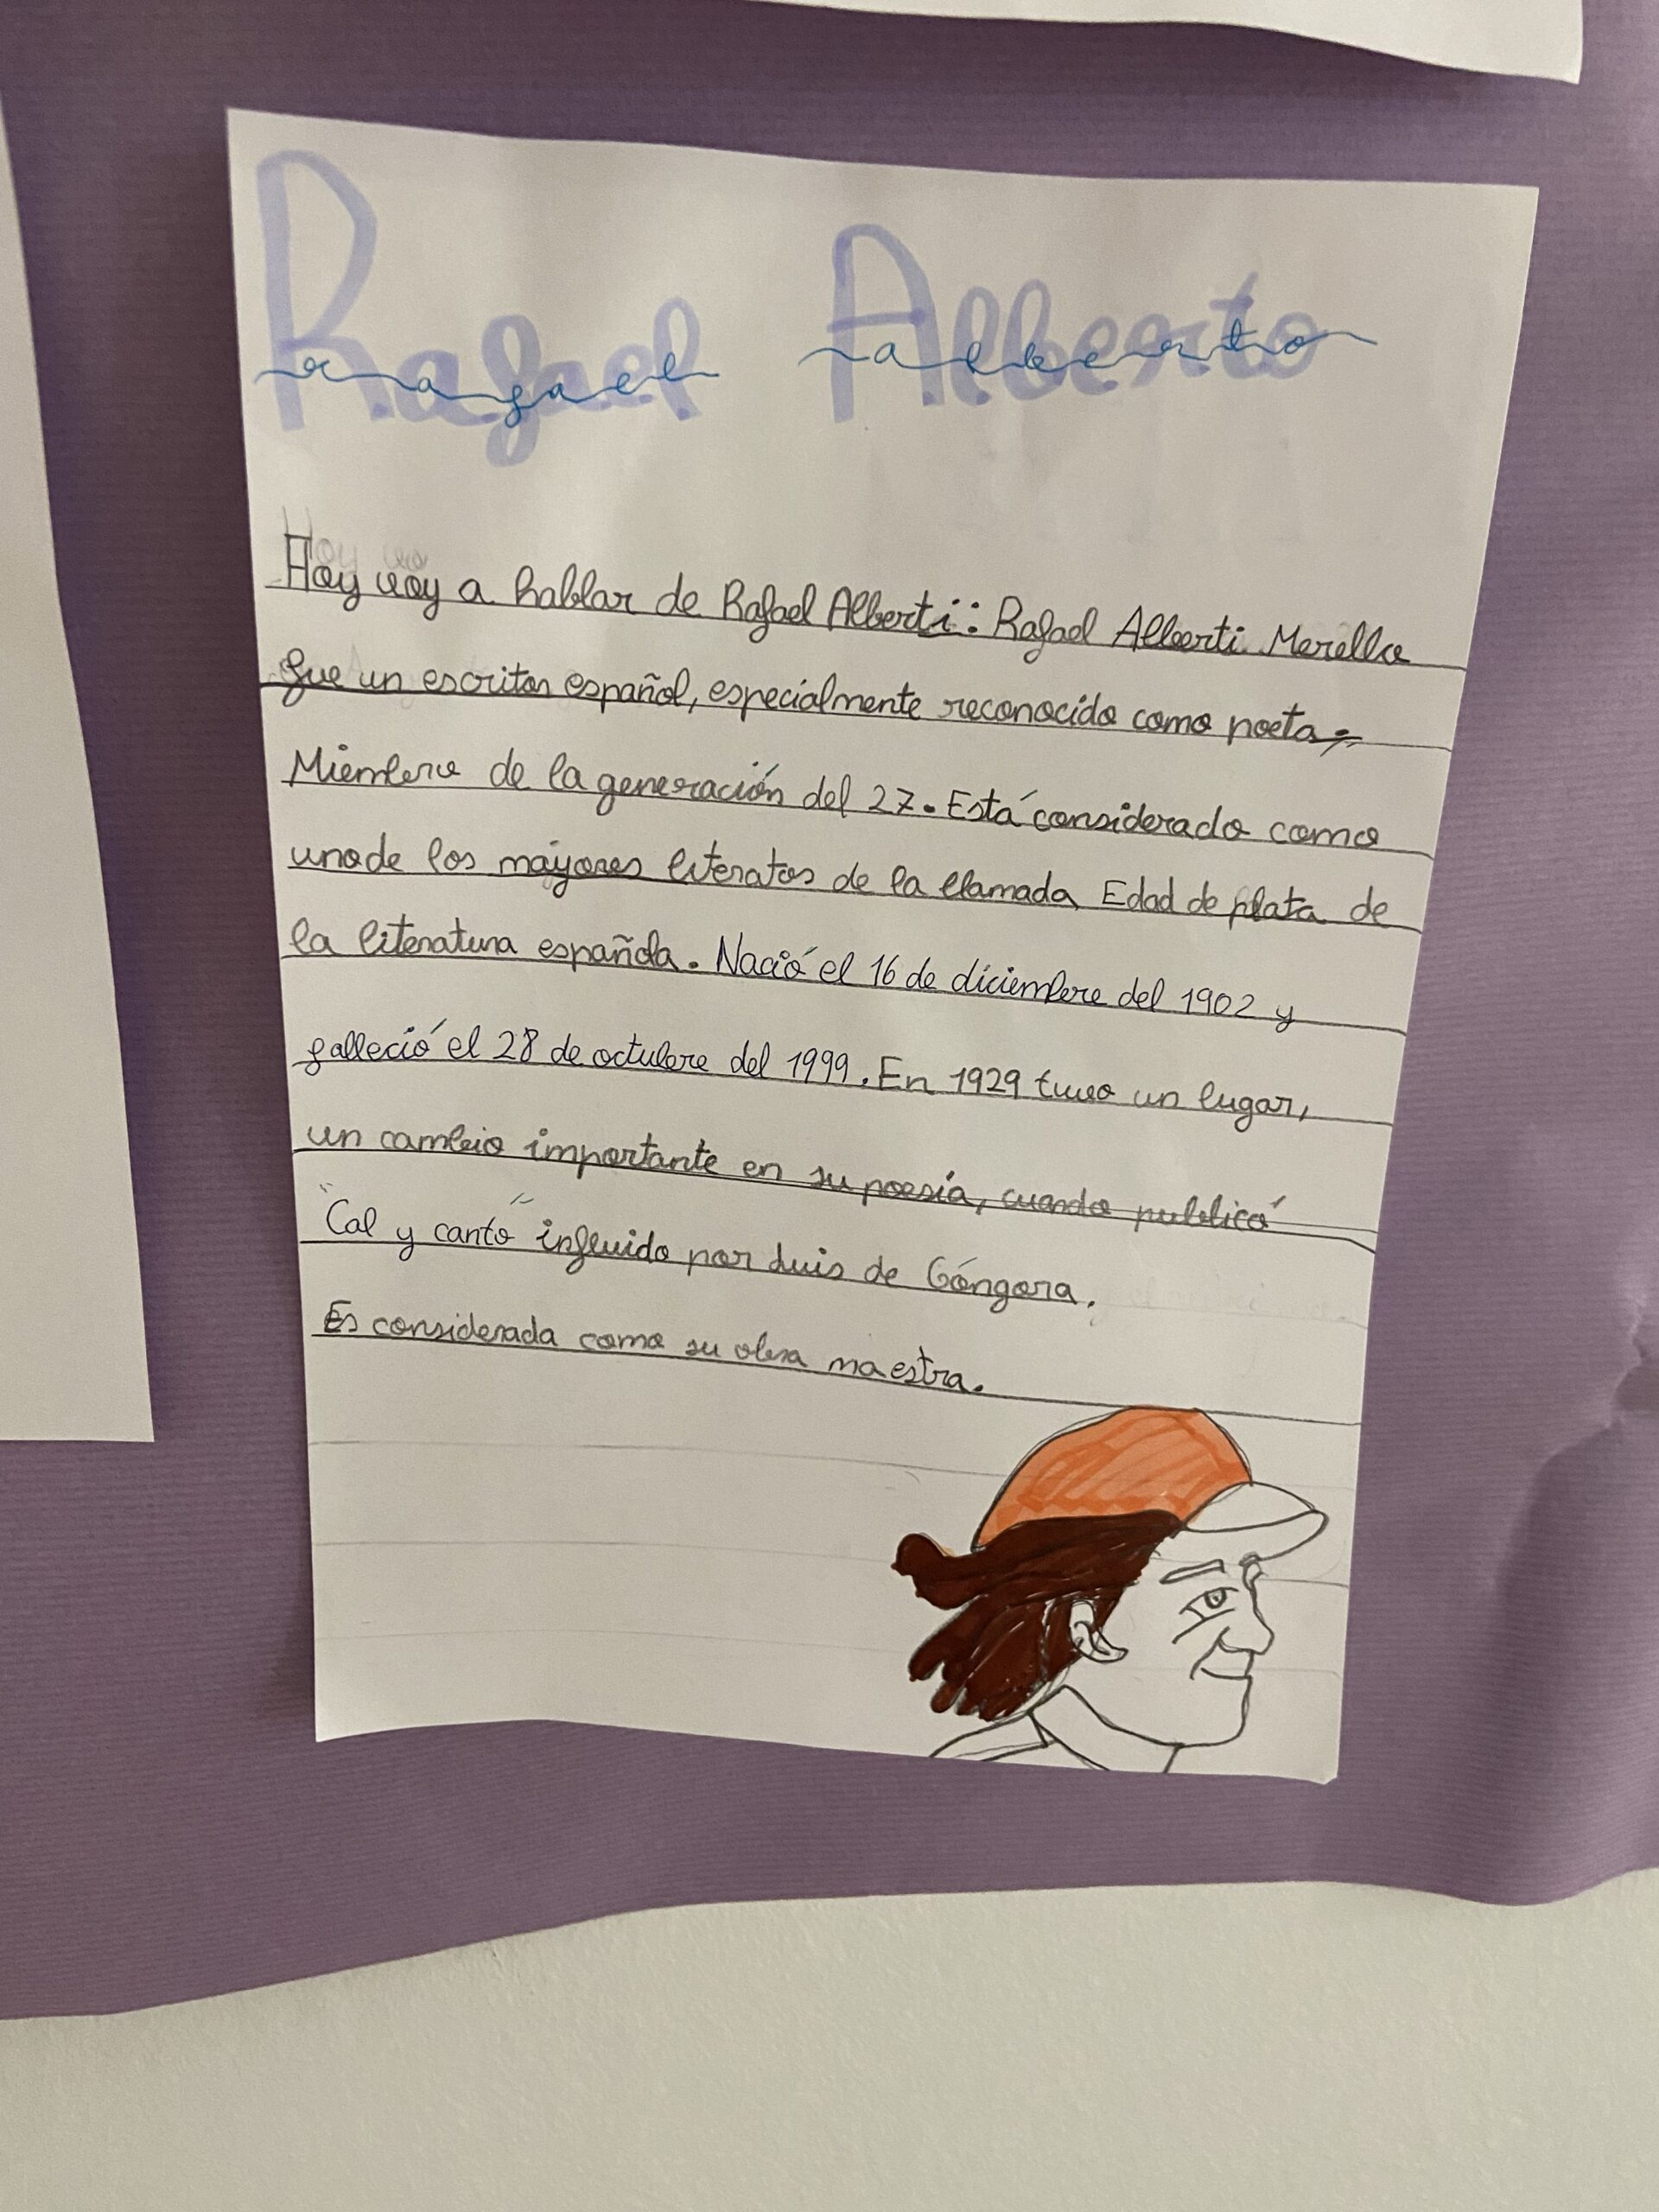 Rafael Alberto
rafael alberto
Hoy voy a hablar de Rafael Alberti: Rafael Alberti Merello
fue un escritor español, especialmente reconocido como poeta,
Miembro de la generación del 27. Está considerado como
uno de los mayores literatos de la llamada Edad de plata de
la literatura española. Nació el 16 de diciembre del 1902 y
falleció el 28 de octubre del 1999. En 1929 tuvo un lugar,
un cambio importante en su poesía, cuando publicó
"Cal y canto" influido por Luis de Góngora.
Es considerada como su obra maestra.